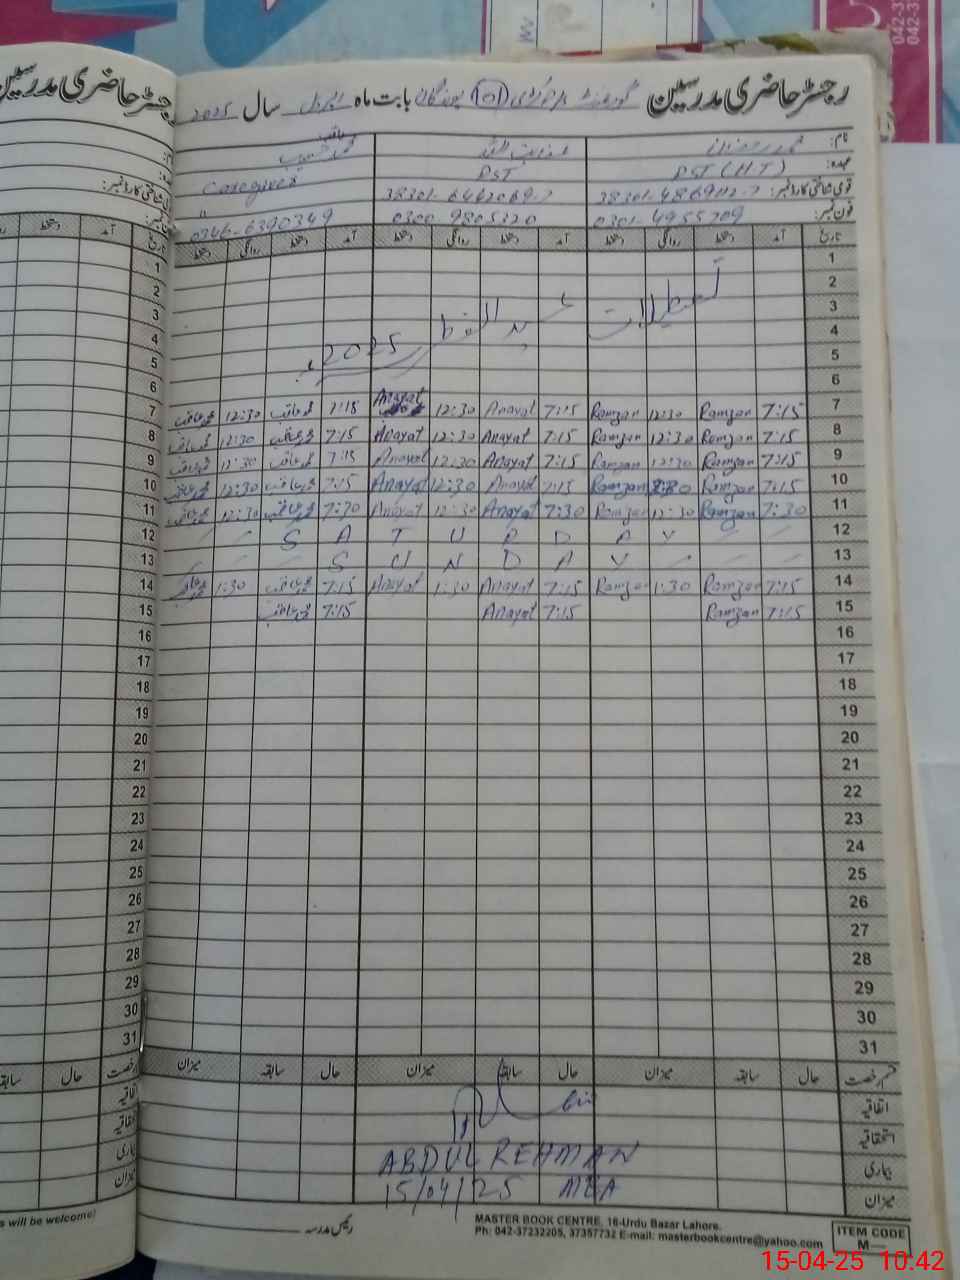 رجسٹر حاضری مدرسین گورنمنٹ بابت ماہ اپریل سال 2025
نام: محمد رمضان عنایت اللہ محمد عاقب
عہدہ: PST (H.T) PST Caregiver
قومی شناختی کارڈ نمبر: 38301-4869112-7 38301-6462069-7 "
فون نمبر: 0301-4955709 0300-9805320 0346-6390349
تاریخ آمد دستخط روانگی دستخط آمد دستخط روانگی دستخط آمد دستخط روانگی دستخط
1
2
3
4
5
6
تعطیلات عید الفطر 2025
7 7:15 Ramzan 12:30 Ramzan 7:15 Anayat 12:30 Anayat 7:15 محمد عاقب 12:30 محمد عاقب
8 7:15 Ramzan 12:30 Ramzan 7:15 Anayat 12:30 Anayat 7:15 محمد عاقب 12:30 محمد عاقب
9 7:15 Ramzan 12:30 Ramzan 7:15 Anayat 12:30 Anayat 7:15 محمد عاقب 12:30 محمد عاقب
10 7:15 Ramzan 12:30 Ramzan 7:15 Anayat 12:30 Anayat 7:15 محمد عاقب 12:30 محمد عاقب
11 7:30 Ramzan 12:30 Ramzan 7:30 Anayat 12:30 Anayat 7:30 محمد عاقب 12:30 محمد عاقب
12 S A T U R D A Y
13 S U N D A Y
14 7:15 Ramzan 1:30 Ramzan 7:15 Anayat 1:30 Anayat 7:15 محمد عاقب 1:30 محمد عاقب
15 7:15 Ramzan 7:15 Anayat 7:15 محمد عاقب
16
17
18
19
20
21
22
23
24
25
26
27
28
29
30
31
قسم رخصت حال سابقہ میزان حال سابقہ میزان حال سابقہ میزان
اتفاقیہ
استحقاقیہ
بیماری
میزان
ABDUL REHMAN
15/04/25 MEA
رئیس مدرسہ
MASTER BOOK CENTRE, 16-Urdu Bazar Lahore.
Ph: 042-37232205, 37357732 E-mail: masterbookcentre@yahoo.com
ITEM CODE
M—
s will be welcome)
15-04-25 10:42